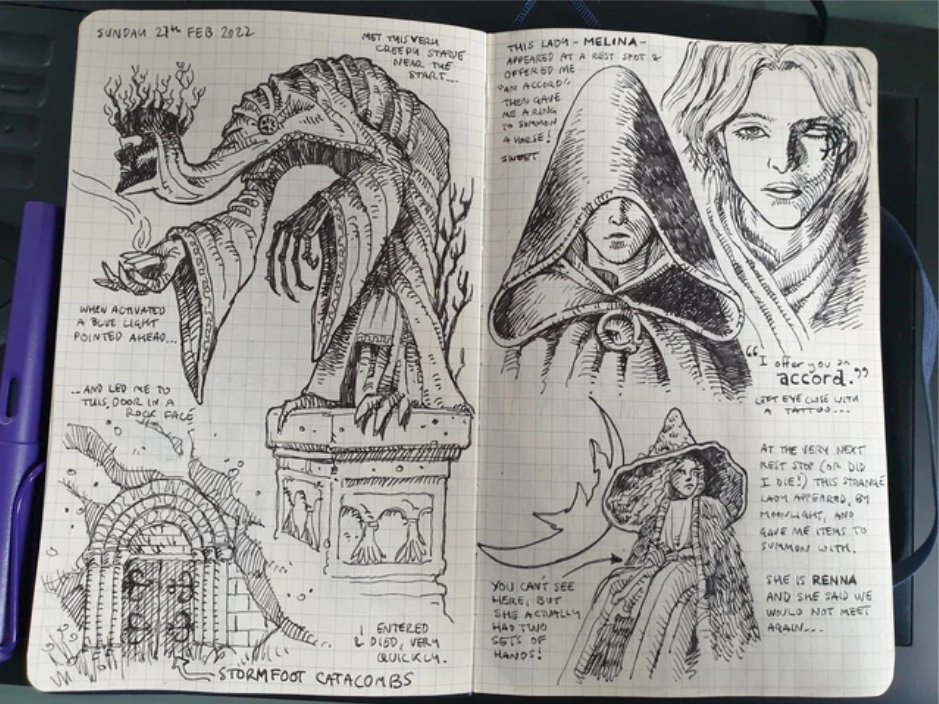 SUNDAY 27th FEB 2022
MET THIS VERY
CREEPY STATUE
NEAR THE
START...
WHEN ACTIVATED
A BLUE LIGHT
POINTED AHEAD...
...AND LED ME TO
THIS DOOR IN A
ROCK FACE
I ENTERED
& DIED, VERY
QUICKLY.
STORMFOOT CATACOMBS
THIS LADY - MELINA -
APPEARED AT A REST SPOT &
OFFERED ME
"AN ACCORD".
THEN GAVE
ME A RING
TO SUMMON
A HORSE!
SWEET
"I offer you an
accord."
LEFT EYE CLOSE WITH
A TATTOO...
AT THE VERY NEXT
REST STOP (OR DID
I DIE!) THIS STRANGE
LADY APPEARED, BY
MOONLIGHT, AND
GAVE ME ITEMS TO
SUMMON WITH.
SHE IS RENNA
AND SHE SAID WE
WOULD NOT MEET
AGAIN...
YOU CAN'T SEE
HERE, BUT
SHE ACTUALLY
HAD TWO
SETS OF
HANDS!